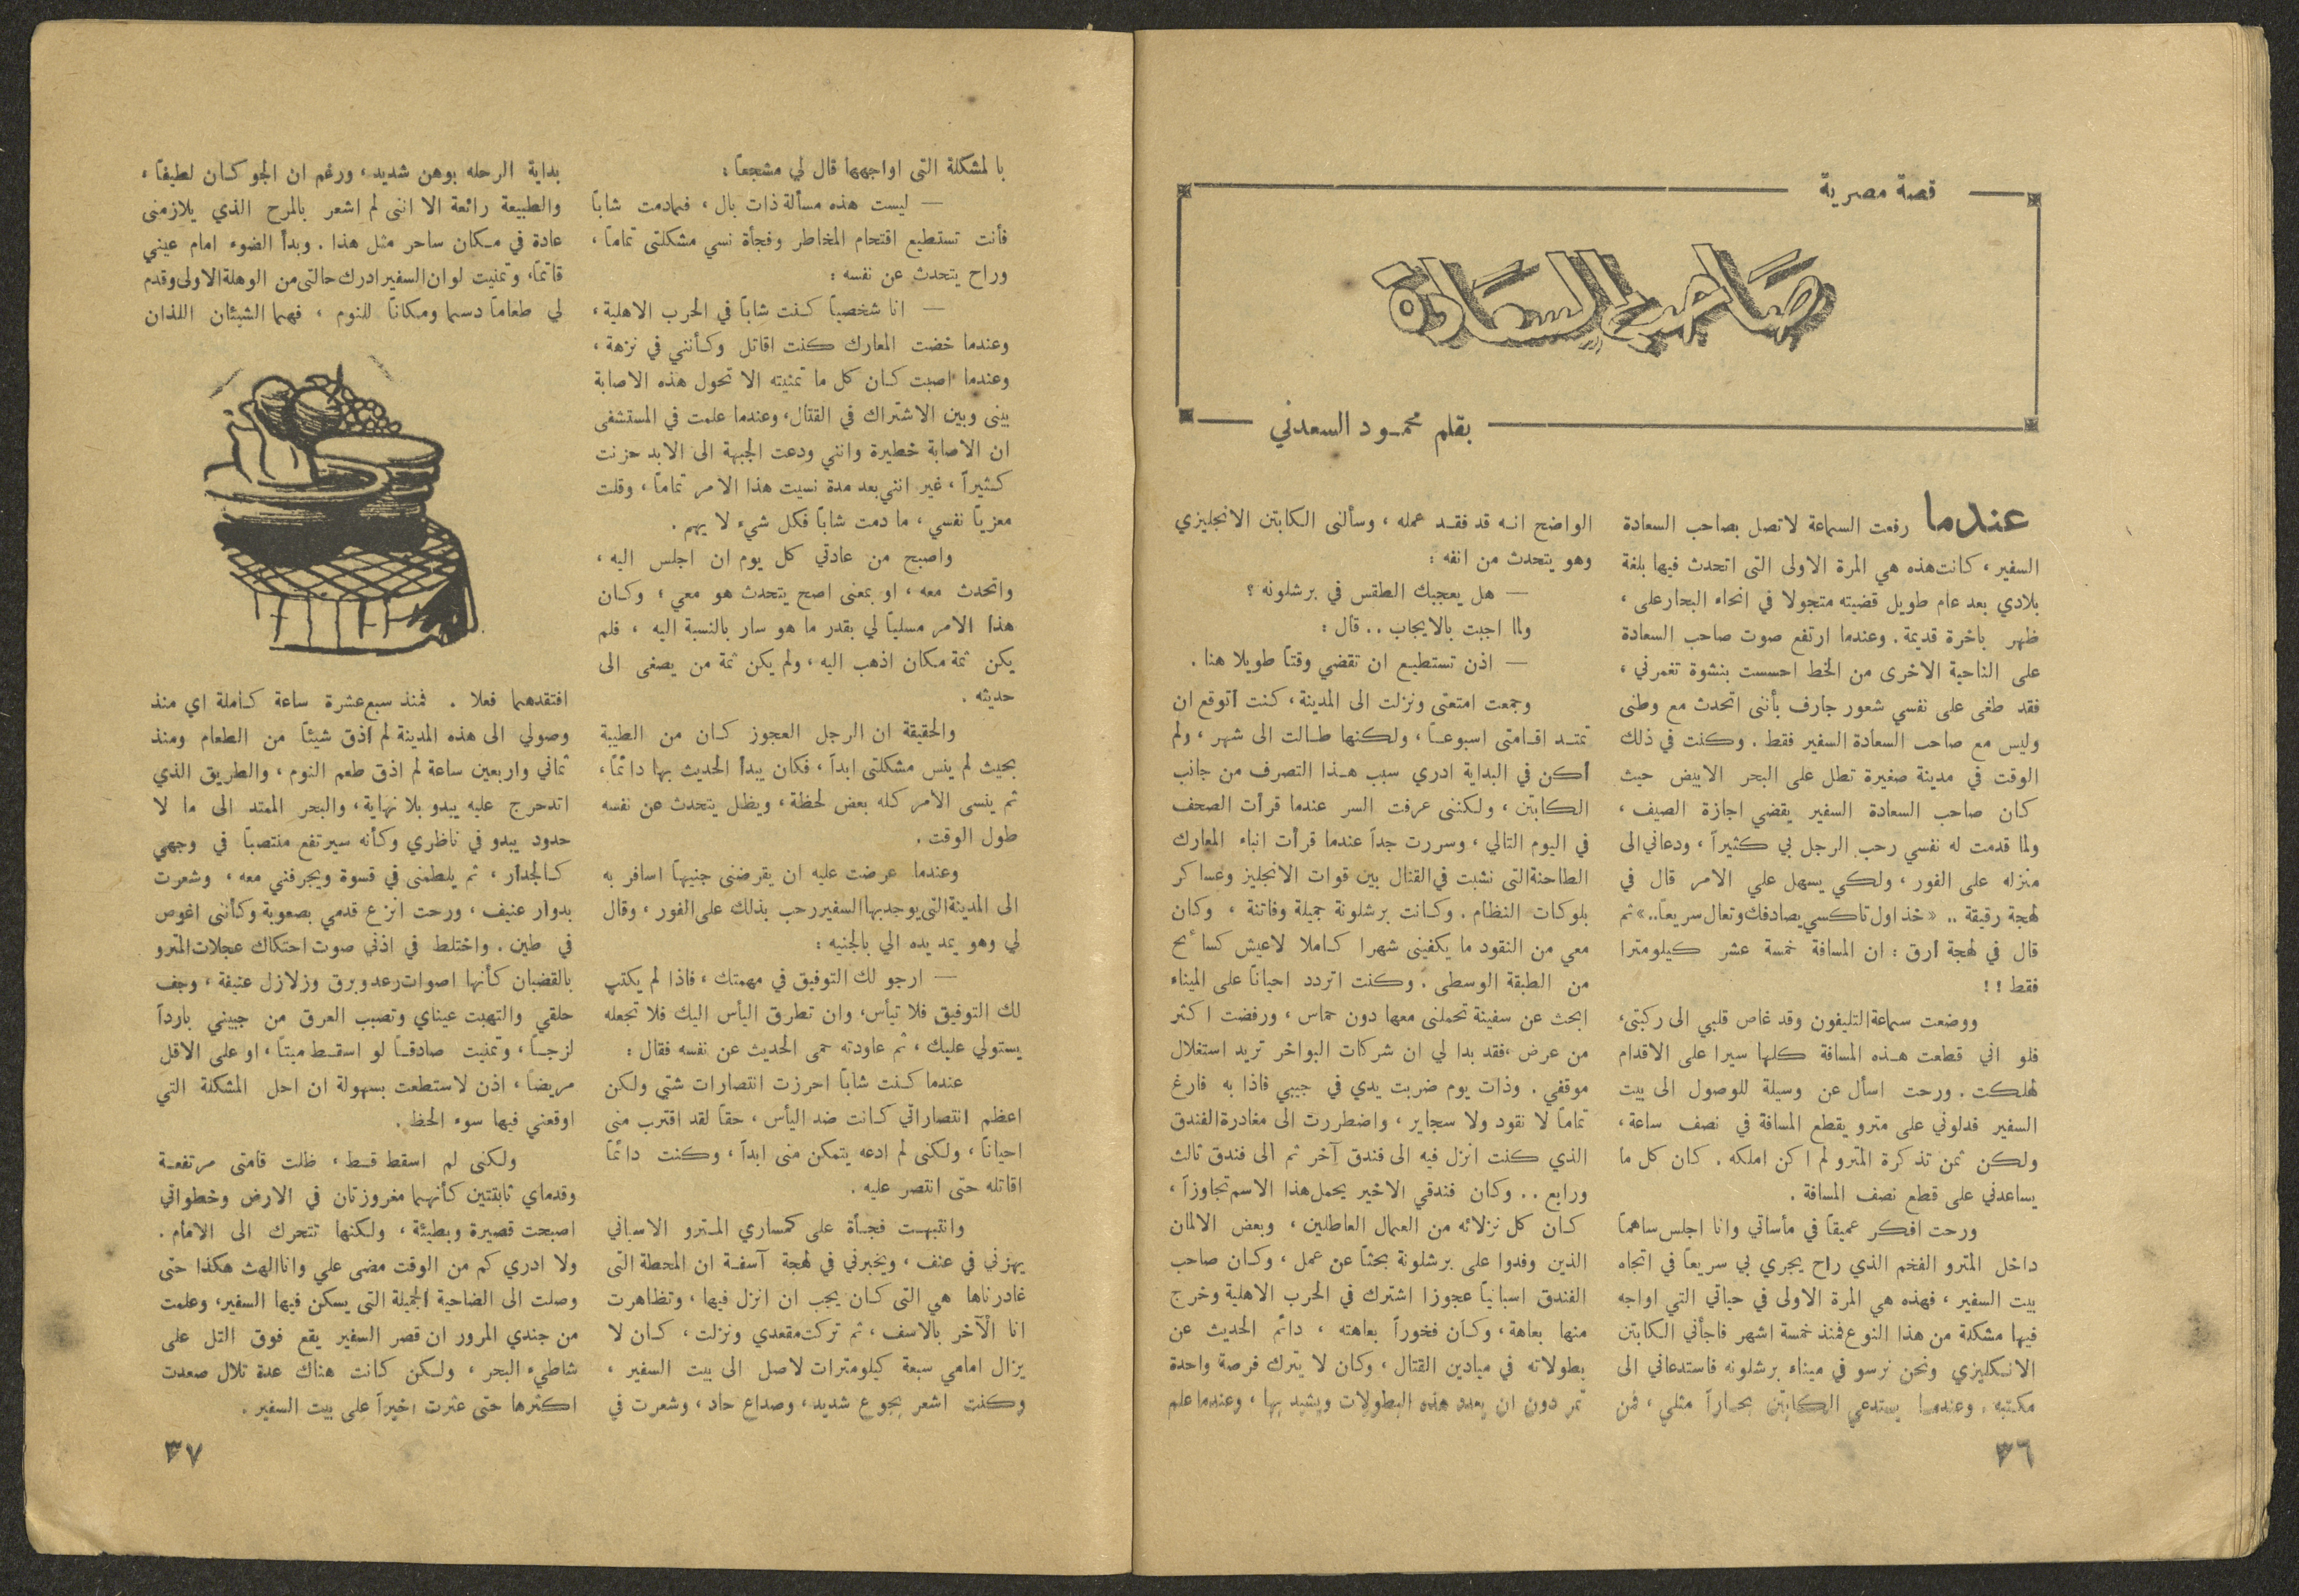 قصة مصرية
صاحب السعادة
بقلم محمود السعدني
عندما رفعت السماعة لاتصل بصاحب السعادة
السفير ، كانت هذه هي المرة الاولى التى اتحدث فيها بلغة
بلادي بعد عام طويل قضيته متجولا في انحاء البحار على ،
ظهر باخرة قديمة . وعندما ارتفع صوت صاحب السعادة
على الناحية الاخرى من الخط احسست بنشوة تغمرني ،
فقد طغى على نفسي شعور جارف بأننى اتحدث مع وطنى
وليس مع صاحب السعادة السفير فقط . وكنت في ذلك
الوقت في مدينة صغيرة تطل على البحر الابيض حيث
كان صاحب السعادة السفير يقضي اجازة الصيف ،
ولما قدمت له نفسي رحب الرجل بي كثيراً ، ودعاني الى
منزله على الفور ، ولكي يسهل علي الامر قال في
لهجة رقيقة .. « خذ اول تاكسي يصادفك وتعال سريعاً .. » ثم
قال في لهجة أرق : ان المسافة خمسة عشر كيلومترا
فقط ! !
ووضعت سماعة التليفون وقد غاص قلبي الى ركبتى ،
فلو اني قطعت هذه المسافة كلها سيرا على الاقدام
لهلكت . ورحت اسأل عن وسيلة للوصول الى بيت
السفير فدلوني على مترو يقطع المسافة في نصف ساعة ،
ولكن ثمن تذكرة المترو لم اكن املكه . كان كل ما
يساعدني على قطع نصف المسافة .
ورحت افكر عميقاً في مأساتي وانا اجلس ساهماً
داخل المترو الفخم الذي راح يجري بي سريعاً في اتجاه
بيت السفير ، فهذه هي المرة الاولى في حياتي التي اواجه
فيها مشكلة من هذا النوع فمنذ خمسة اشهر فاجأني الكابتن
الانكليزي ونحن نرسو في ميناء برشلونه فاستدعاني الى
مكتبه ، وعندما يستدعي الكابتن بحاراً مثلي ، فمن
الواضح انه قد فقد عمله ، وسألنى الكابتن الانجليزي
وهو يتحدث من انفه :
— هل يعجبك الطقس في برشلونه ؟
ولما اجبت بالايجاب .. قال :
— اذن تستطيع ان تقضي وقتاً طويلا هنا .
وجمعت امتعتى ونزلت الى المدينة ، كنت أتوقع ان
تمتد اقامتى اسبوعاً ، ولكنها طالت الى شهر ، ولم
أكن في البداية ادري سبب هذا التصرف من جانب
الكابتن ، ولكننى عرفت السر عندما قرأت الصحف
في اليوم التالي ، وسررت جداً عندما قرأت انباء المعارك
الطاحنة التى نشبت في القنال بين قوات الانجليز وعساكر
بلوكات النظام . وكانت برشلونة جميلة وفاتنة ، وكان
معي من النقود ما يكفينى شهرا كاملا لاعيش كسائح
من الطبقة الوسطى . وكنت اتردد احياناً على الميناء
ابحث عن سفينة تحملنى معها دون حماس ، ورفضت اكثر
من عرض ، فقد بدا لي ان شركات البواخر تريد استغلال
موقفي . وذات يوم ضربت يدي في جيبي فاذا به فارغ
تماماً لا نقود ولا سجاير ، واضطررت الى مغادرة الفندق
الذي كنت انزل فيه الى فندق آخر ثم الى فندق ثالث
ورابع .. وكان فندقي الاخير يحمل هذا الاسم تجاوزاً ،
كان كل نزلائه من العمال العاطلين ، وبعض الالمان
الذين وفدوا على برشلونة بحثاً عن عمل ، وكان صاحب
الفندق اسبانياً عجوزا اشترك في الحرب الاهلية وخرج
منها بعاهة ، وكان فخوراً بعاهته ، دائم الحديث عن
بطولاته في ميادين القتال ، وكان لا يترك فرصة واحدة
تمر دون ان يعدد هذه البطولات ويشيد بها ، وعندما علم
٣٦
بالمشكلة التى اواجهها قال لي مشجعاً :
— ليست هذه مسألة ذات بال ، فمادمت شاباً
فأنت تستطيع اقتحام المخاطر وفجأة نسي مشكلتى تماماً ،
وراح يتحدث عن نفسه :
— انا شخصياً كنت شاباً في الحرب الاهلية ،
وعندما خضت المعارك كنت اقاتل وكأنني في نزهة ،
وعندما اصبت كان كل ما تمنيته الا تحول هذه الاصابة
بينى وبين الاشتراك في القتال ، وعندما علمت في المستشفى
ان الاصابة خطيرة وانني ودعت الجبهة الى الابد حزنت
كثيراً ، غير انني بعد مدة نسيت هذا الامر تماماً ، وقلت
معزياً نفسي ، ما دمت شاباً فكل شيء لا يهم .
واصبح من عادتي كل يوم ان اجلس اليه ،
واتحدث معه ، او بمعنى اصح يتحدث هو معي ، وكان
هذا الامر مسلياً لي بقدر ما هو سار بالنسبة اليه ، فلم
يكن ثمة مكان اذهب اليه ، ولم يكن ثمة من يصغى الى
حديثه .
والحقيقة ان الرجل العجوز كان من الطيبة
بحيث لم ينس مشكلتى ابداً ، فكان يبدأ الحديث بها دائماً ،
ثم ينسى الامر كله بعض لحظة ، ويظل يتحدث عن نفسه
طول الوقت .
وعندما عرضت عليه ان يقرضنى جنيهاً اسافر به
الى المدينة التى يوجد بها السفير رحب بذلك على الفور ، وقال
لي وهو يمد يده الي بالجنيه :
— ارجو لك التوفيق في مهمتك ، فاذا لم يكتب
لك التوفيق فلا تيأس ، وان تطرق اليأس اليك فلا تجعله
يستولي عليك ، ثم عاودته حمى الحديث عن نفسه فقال :
عندما كنت شاباً احرزت انتصارات شتى ولكن
اعظم انتصاراتي كانت ضد اليأس ، حقاً لقد اقترب منى
احياناً ، ولكنى لم ادعه يتمكن منى ابداً ، وكنت دائماً
اقاتله حتى انتصر عليه .
وانتبهت فجأة على كمساري المترو الاسباني
يهزني في عنف ، ويخبرني في لهجة آسفة ان المحطة التى
غادرناها هي التى كان يجب ان انزل فيها ، وتظاهرت
انا الآخر بالاسف ، ثم تركت مقعدي ونزلت ، كان لا
يزال امامي سبعة كيلومترات لاصل الى بيت السفير ،
وكنت اشعر بجوع شديد ، وصداع حاد ، وشعرت في
بداية الرحله بوهن شديد ، ورغم ان الجو كان لطيفاً ،
والطبيعة رائعة الا اننى لم اشعر بالمرح الذي يلازمنى
عادة في مكان ساحر مثل هذا . وبدأ الضوء امام عيني
قاتماً ، وتمنيت لو ان السفير ادرك حالتى من الوهلة الاولى وقدم
لي طعاماً دسما ومكاناً للنوم ، فهما الشيئان اللذان
افتقدهما فعلا . فمنذ سبع عشرة ساعة كاملة اي منذ
وصولي الى هذه المدينة لم أذق شيئاً من الطعام ومنذ
ثماني واربعين ساعة لم اذق طعم النوم ، والطريق الذي
اتدحرج عليه يبدو بلا نهاية ، والبحر الممتد الى ما لا
حدود يبدو في ناظري وكأنه سيرتفع منتصباً في وجهي
كالجدار ، ثم يلطمنى في قسوة ويجرفني معه ، وشعرت
بدوار عنيف ، ورحت انزع قدمي بصعوبة وكأننى اغوص
في طين . واختلط في اذني صوت احتكاك عجلات المترو
بالقضبان كأنها اصوات رعد وبرق وزلازل عنيفة ، وجف
حلقي والتهبت عيناي وتصبب العرق من جبيني بارداً
لزجاً ، وتمنيت صادقاً لو اسقط ميتاً ، او على الاقل
مريضاً ، اذن لاستطعت بسهولة ان احل المشكلة التي
اوقعني فيها سوء الحظ .
ولكنى لم اسقط قط ، ظلت قامتى مرتفعة
وقدماي ثابتتين كأنهما مغروزتان في الارض وخطواتي
اصبحت قصيرة وبطيئة ، ولكنها تتحرك الى الامام .
ولا ادري كم من الوقت مضى علي وانا الهث هكذا حتى
وصلت الى الضاحية الجميلة التى يسكن فيها السفير ، وعلمت
من جندي المرور ان قصر السفير يقع فوق التل على
شاطيء البحر ، ولكن كانت هناك عدة تلال صعدت
اكثرها حتى عثرت اخيراً على بيت السفير .
٣٧